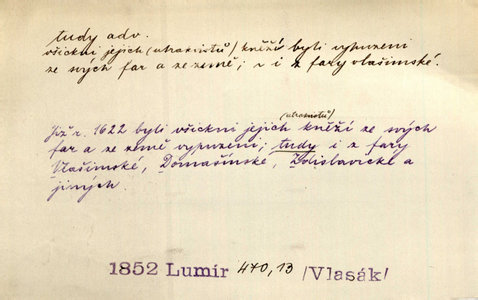 tudy adv.
všickni jejich (utrakvistů) kněží byli vypuzeni
ze svých far a ze země; i z fary vlašimské.
(utrakvistů)
Již r. 1622 byli všickni jejich kněží ze svých
far a ze země vypuzeni; tudy i z fary
Vlašimské, Domašínské, Zdislavické a
jiných
1852 Lumír 470,13 /Vlasák/